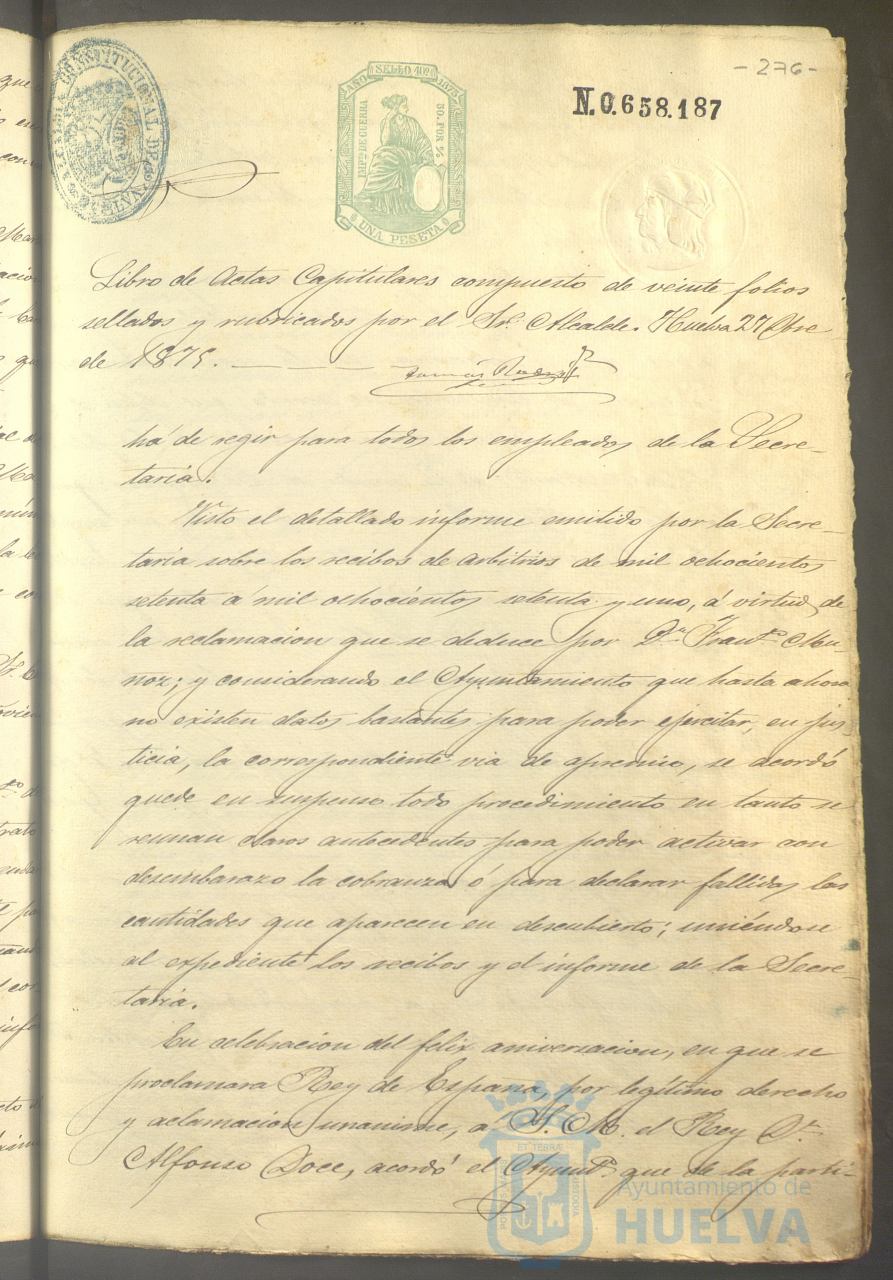 - 276 -
ALCALDIA CONSTITUCIONAL DE HUELVA
AÑO SELLO 10º 1875
IMPtO DE GUERRA
50. POR %
UNA PESETA
N.0.658.187
Libro de Actas Capitulares compuesto de veinte folios
sellados y rubricados por el Sr. Alcalde. Huelva 27 Dbre
de 1875.
Tomás
há de regir para todos los empleados de la Secre-
taría.
Visto el detallado informe emitido por la Secre-
taria sobre los recibos de arbitrios de mil ochocientos
setenta á mil ochocientos setenta y uno, á virtud de
la reclamacion que se deduce por Dn Franco Mu-
ñoz; y considerando el Ayuntamiento que hasta ahora
no existen datos bastantes para poder ejercitar, en jus
ticia, la correspondiente via de apremio, se acordó
quede en suspenso todo procedimiento en tanto se
reunan claros antecedentes para poder activar con
desembarazo la cobranza ó para declarar fallidas las
cantidades que aparecen en descubierto; uniéndose
al expediente los recibos y el informe de la Secre
taria.
En celebracion del felix aniversacion, en que se
proclamara Rey de España, por legítimo derecho
y aclamacion unanime, a S. M. el Rey Dn
Alfonso Doce, acordó el Ayuntº que de la parti-
Ayuntamiento de
HUELVA